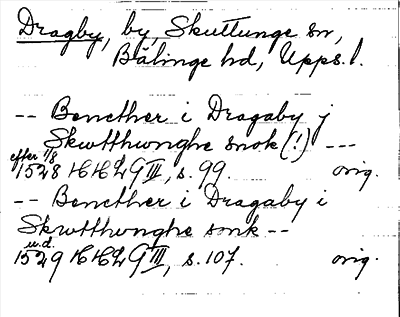 Dragby, by, Skuttunge sn,
Bälinge hd, Upps. l.
-- Bencther i Dragaby j
Skwtthwnghe snok (!) ---
efter 1/8
1528 HH2 G III, s. 99. orig.
-- Benether i Dragaby i
Skrutthwnghe snk --
u.d.
1529 HH2 G III, s. 107. orig.